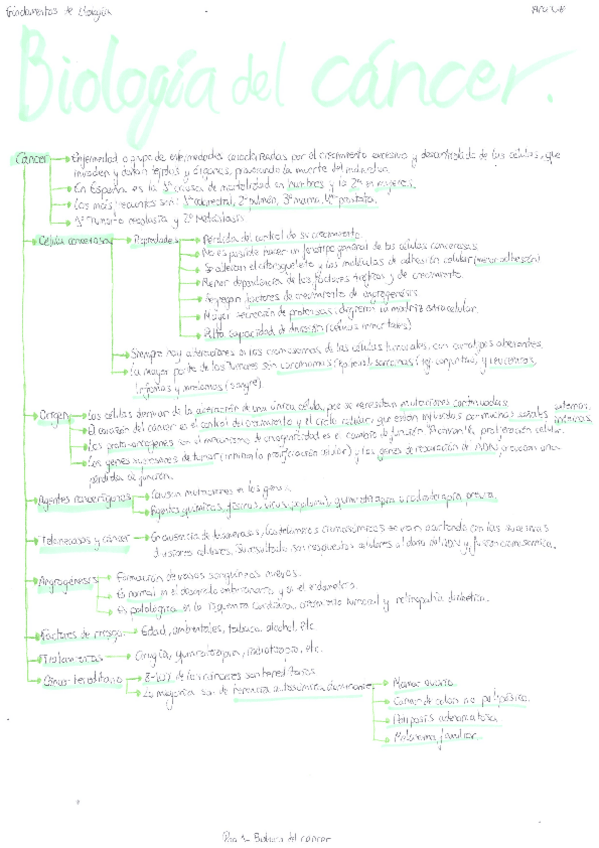 Fundamentos de Biología
Biología del cáncer.
Cáncer → Enfermedad o grupo de enfermedades caracterizadas por el crecimiento excesivo y descontrolado de las células, que
invaden y dañan tejidos y órganos, provocando la muerte del individuo.
→ En España es la 1ª causa de mortalidad en hombres y la 2ª en mujeres.
→ Los más frecuentes son: 1º colorrectal, 2º pulmón, 3º mama, 4º próstata.
→ 1º Tumor o neoplasia y 2º Metástasis
Célula cancerosa → Propiedades → Pérdida del control de su crecimiento
→ No es posible hacer un fenotipo general de las células cancerosas
→ Se alteran el citoesqueleto y las moléculas de adhesión celular (menor adhesión)
→ Menor dependencia de los factores tróficos y de crecimiento
→ Segregan factores de crecimiento de angiogénesis
→ Mayor secreción de proteasas, degradan la matriz extracelular.
→ Alta capacidad de división (células inmortales)
→ Siempre hay alteraciones en los cromosomas de las células tumorales, con cariotipos aberrantes.
→ La mayor parte de los tumores son carcinomas (epitelial), sarcomas (tej. conjuntivo) y leucemias,
linfomas y mielomas (sangre)
Origen → Las células derivan de la activación de una única célula, pero se necesitan mutaciones continuadas.
→ El corazón del cáncer es el control del crecimiento y el ciclo celular, que están influidos por muchas señales externas,
internas.
→ Los proto-oncogenes son el mecanismo de oncogenicidad es el cambio de función proliferación celular.
→ Los genes supresores de tumor (inhiben la proliferación celular) y los genes de reparación de ADN, provocan una
pérdida de función.
Agentes cancerígenos → Causan mutaciones en los genes.
→ Agentes químicos, físicos, virus, quimioterapia o radioterapia previa.
Telomerasas y cáncer → En ausencia de telomerasas, los telómeros cromosómicos se van acortando con las sucesivas
divisiones celulares. Su resultado son respuestas celulares al daño del ADN y fusión cromosómica.
Angiogénesis → Formación de vasos sanguíneos nuevos.
→ Es normal en el desarrollo embrionario y en el endometrio.
→ Es patológica en la isquemia cardíaca, crecimiento tumoral y retinopatía diabética.
Factores de riesgo → Edad, ambientales, tabaco, alcohol, etc
Tratamientos → Cirugía, quimioterapia, radioterapia, etc.
Cáncer hereditario → de los cánceres son hereditarios
→ La mayoría son de herencia autosómica dominante. → Mama ovario
→ Cáncer de colon no polipósico.
→ Poliposis adenomatosa
→ Melanoma familiar.
Pág 1- Biología del cáncer